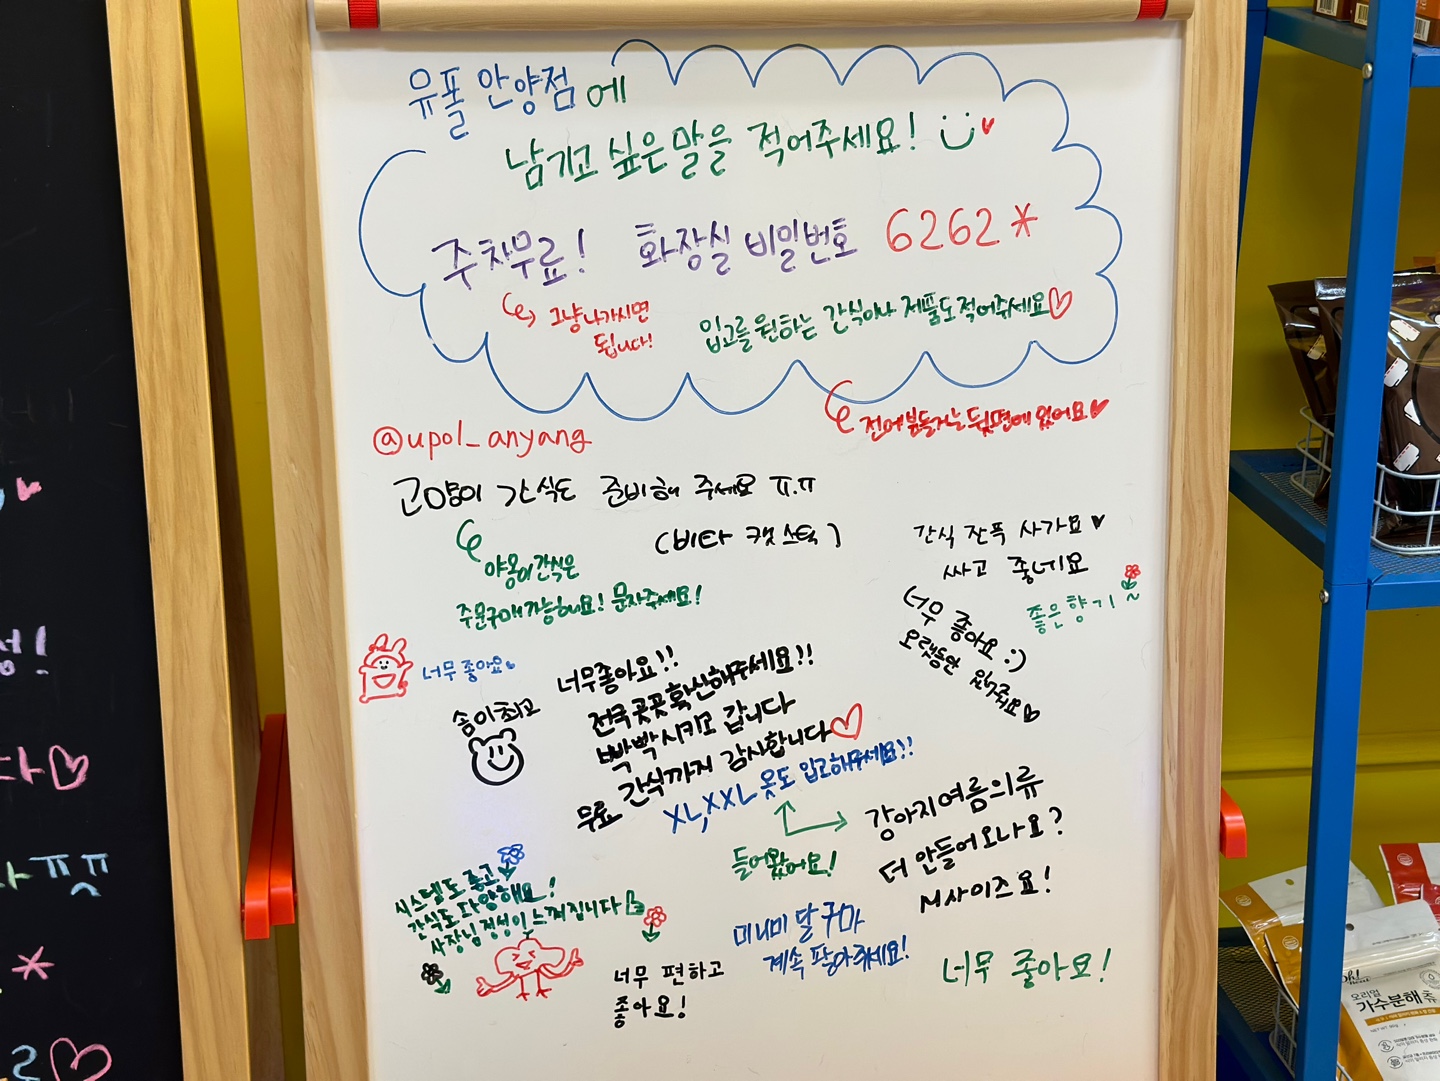 유폴 안양점에
남기고 싶은 말을 적어주세요!
주차무료! 화장실 비밀번호 6262*
그냥 나가시면
됩니다!
입고를 원하는 간식이나 제품도 적어주세요♡
전에 붙들거는 뒷면에 있어요♥
@upol_anyang
고양이 간식도 준비해 주세요 ㅠ.ㅠ
(비타 캣 스틱)
야옹이간식은
주문구매가능해요! 문자주세요!
간식 잔뜩 사가요♥
싸고 좋네요
좋은향기~
너무 좋아요 :)
오랫동안 있어줘요♡
너무 좋아요♥
송이최고
너무좋아요!!
전국 곳곳 확산해주세요!!
빡빡 시키고 갑니다
간식까지 감사합니다♡
무료
XL,XXL 옷도 입고해주세요!!
들어왔어요!
강아지여름의류
더 안들어오나요?
M사이즈요!
시스템도 좋고
간식도 다양해요!
사장님 정성이 느껴집니다
미니미 달구마
계속 팔아주세요!
너무 편하고
좋아요!
너무 좋아요!
오리얼
가수분해츄